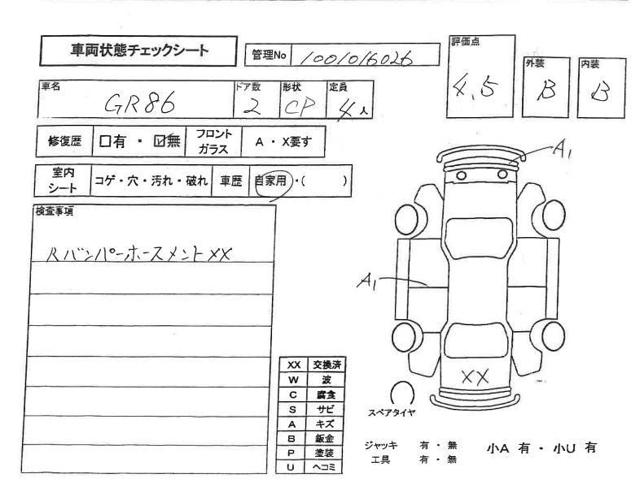 車両状態チェックシート
管理No 1001016026
評価点 4.5
外装 B
内装 B
車名 GR86
ドア数 2
形状 CP
定員 4人
修復歴 □有 ・ ☑無
フロントガラス A ・ X要す
室内シート コゲ・穴・汚れ・破れ
車歴 自家用・( )
検査事項
RバンパーホースメントXX
A1
A1
XX
XX 交換済
W 波
C 腐食
S サビ
A キズ
B 鈑金
P 塗装
U ヘコミ
スペアタイヤ
ジャッキ 有 ・ 無
工具 有 ・ 無
小A 有 ・ 小U 有